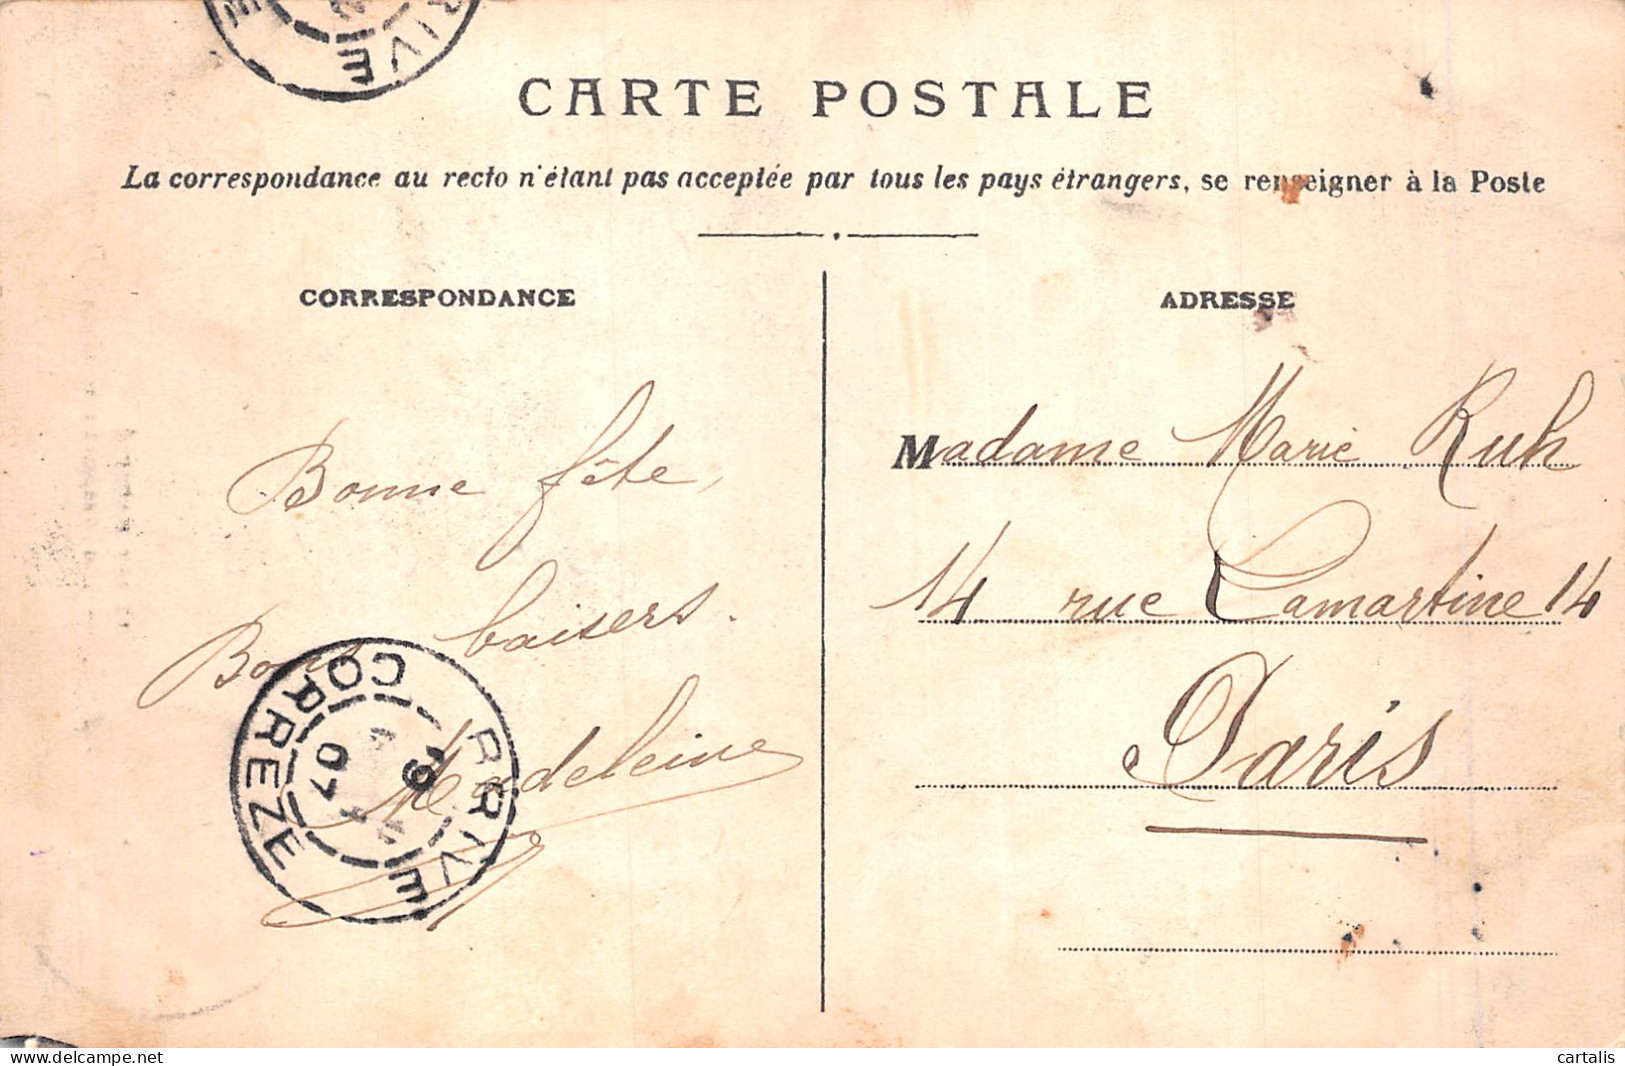 RIVE
CARTE POSTALE
La correspondance au recto n'étant pas acceptée par tous les pays étrangers, se renseigner à la Poste
CORRESPONDANCE
Bonne fête,
Bons baisers.
Madeleine
BRIVE
CORREZE
19
07
ADRESSE
Madame Marie Ruh
14 rue Lamartine 14
Paris
delcampe.net
cartalis